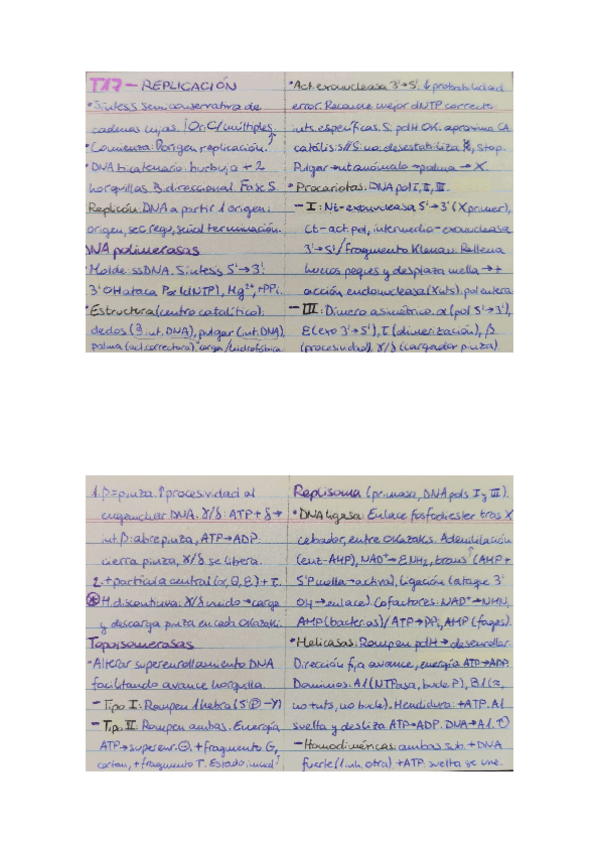 T17 - REPLICACIÓN
• Síntesis semiconservativa de
cadenas hijas. 1 Ori C/múltiples.
• Comienza: origen replicación.
• DNA bicatenario: burbuja + 2
horquillas. Bidireccional. Fase S
Replicón: DNA a partir 1 origen:
origen, sec regs, señal terminación.
DNA polimerasas
• Molde: ssDNA. Síntesis 5'→3'.
3'OH ataca Pα (dNTP), Mg²⁺, +PPi.
• Estructura (centro catalítico):
dedos (int. DNA), pulgar (int. DNA),
palma (act. correctora), carga/hidrofóbica
• Act. exonucleasa 3'→5'. ↓ probabilidad
error. Reconoce mejor dNTP correcto
ints. específicas. Si pdH OK, aproxima CA
catális: sí/Si no, desestabiliza, stop.
Pulgar → palma → X.
• Procariotas: DNA pol I, II, III.
- I: Nt-exonucleasa 5'→3' (X primer),
Ct-act. pol, intermedio-exonucleasa
3'→5'/Fragmento Klenow. Rellena
huecos peques y desplaza mella → +
acción endonucleasa (Xuts). pol entera
- III: Dímero asimétrico. α (pol 5'→3'),
ε (exo 3'→5'), τ (dimerización), β
(procesividad), γ/δ (cargador pinza).
1. β = pinza. ↑ procesividad al
enganchar DNA. γ/δ: ATP + δ →
int. β: abre pinza, ATP → ADP.
cierra pinza, γ/δ se libera.
2. + partícula central (α, θ, ε) + τ.
* H. discontinua: γ/δ unido → carga
y descarga pinza en cada Okazaki.
Topoisomerasas
• Alterar superenrollamiento DNA
facilitando avance horquilla.
- Tipo I: Rompen 1 hebra (5'P-Y)
- Tipo II: Rompen ambas. Energía
ATP → superenr. ⊖. + fragmento G,
cortan, + fragmento T. Estado inicial
Replisoma (primasa, DNA pols I y III).
• DNA ligasa: Enlace fosfodiester tras X
cebrador, entre Okazakis. Adenilación
(enz-AMP), NAD⁺ → ENH₂, trans (AMP +
5'P mella → activa), ligación (ataque 3'
OH → enlace). Cofactores: NAD⁺ → NMN,
AMP (bacterias)/ATP → PPi, AMP (fagos).
• Helicasas: Rompen pdH → desenrollar.
Dirección fija avance, energía ATP → ADP.
Dominios: A1 (NTPasa, bucle P), B1 (=,
no tuts, no bucle). Hendidura: +ATP. A1
suelta y desliza ATP → ADP. DNA → A1. ↻
- Homodiméricas: ambas sub. + DNA
fuerte (1 inh. otra) + ATP: suelta se une.